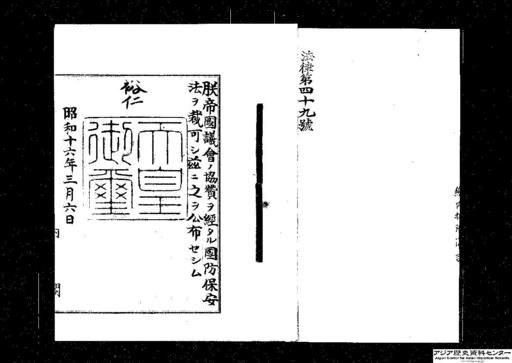 法律第四十九號
朕帝國議會ノ協贊ヲ經タル國防保安
法ヲ裁可シ茲ニ之ヲ公布セシム
裕仁
天皇
御璽
昭和十六年三月六日
内閣
アジア歴史資料センター
Japan Center for Asian Historical Records